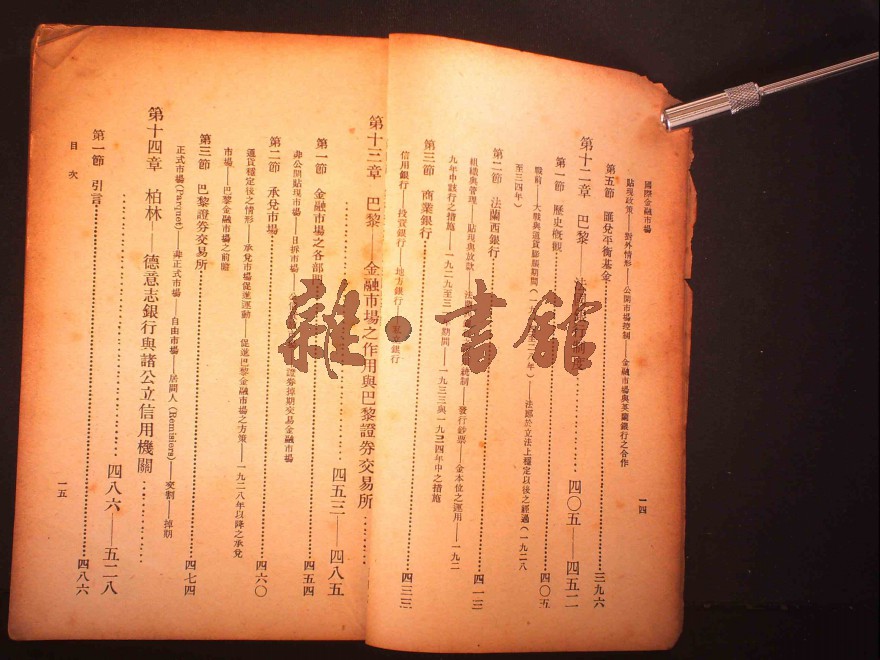 國際金融市場
一四
貼現政策——對外情形——公開市場控制——金融市場與英蘭銀行之合作
第五節 匯兌平衡基金……三九六
第十二章 巴黎——法 銀行制度……四〇五——四五二
第一節 歷史槪觀……四〇五
戰前——大戰與通貨膨脹期間(一九 至二八年)——法郎於立法上穩定以後之經過(一九二八
至三四年)
第二節 法蘭西銀行……四一三
組織與管理——貼現與放款——法 統制——發行鈔票——金本位之運用——一九二
九年中施行之措施——一九二九至三 期間——一九三三與一九三四年中之措施
第三節 商業銀行……四三三
信用銀行——投資銀行——地方銀行—— 銀行
第十三章 巴黎——金融市場之作用與巴黎證券交易所……
……四五三——四八五
第一節 金融市場之各部門……四五四
非公開貼現市場——日拆市場——公 證券掉期交易金融市場
第二節 承兌市場……四六〇
通貨穩定後之情形——承兌市場促進運動——促進巴黎金融市場之方策——一九二八年以降之承兌
市場——巴黎金融市場之前瞻
第三節 巴黎證券交易所……四七四
正式市場(Parquet)——非正式市場——自由市場——居間人(Remisiers)——交割——掉期
第十四章 柏林——德意志銀行與諸公立信用機關……
……四八六——五二八
第一節 引言……四八六
目次
一五
雜·書館